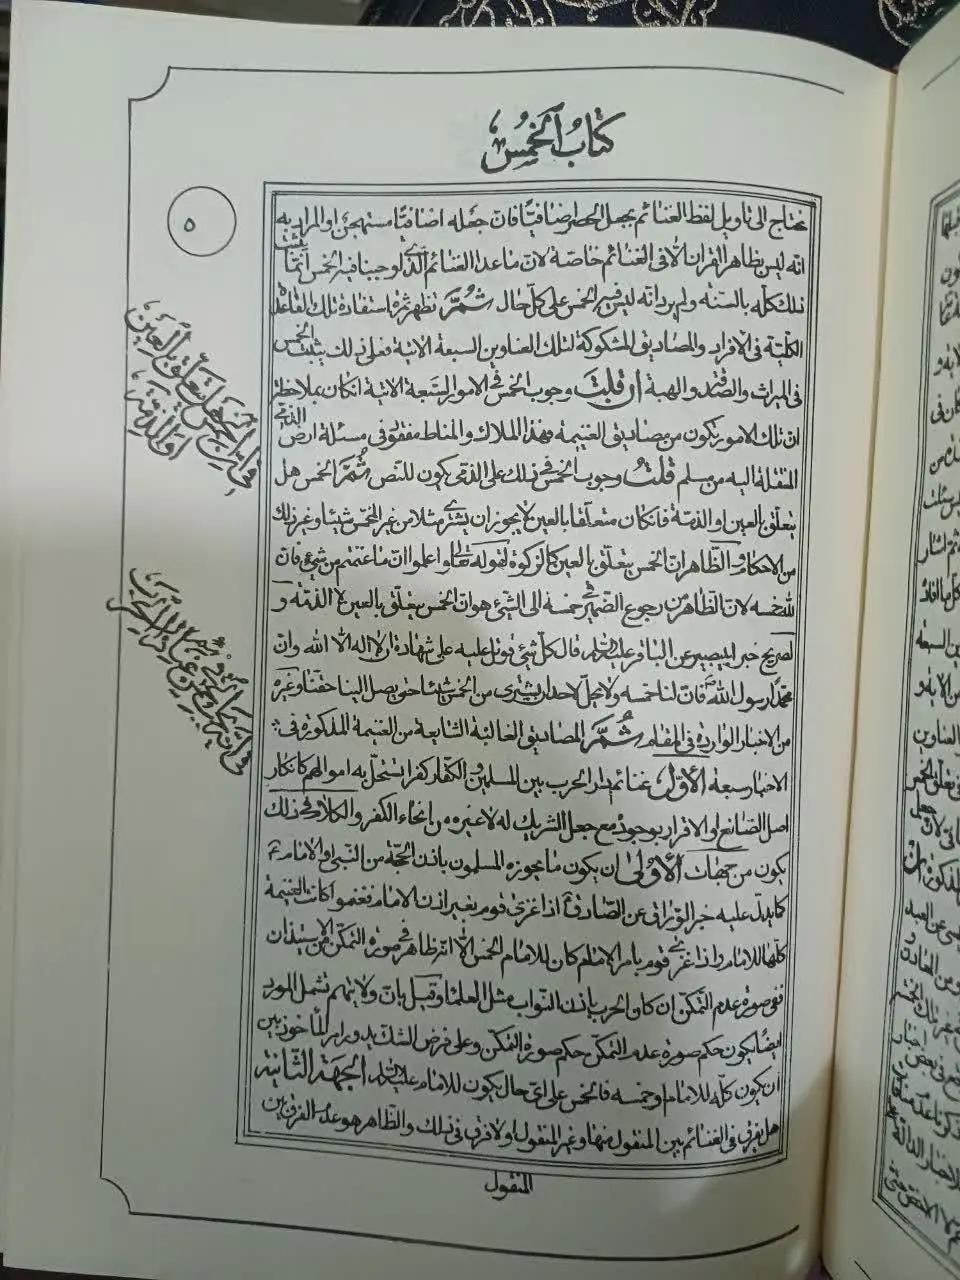 كتاب الخمس
٥
نحتاج الى تاويل لفظ الغنائم بجعل الحصر اضافيًّا فان جعله اضافيًّا مستهجن او المراد به
انه ليس بظاهر القران الّا فى الغنائم خاصة لان ما عدا الغنائم الّذى اوجبنا فيه الخمس انّما يثبت
ذلك كلّه بالسنّة ولم يرد انه ليس فيه الخمس على كلّ حال ثمّ تظهر ثمرة استفادة تلك القاعدة
الكلّية فى الافراد والمصاديق المشكوكة لتلك العناوين السبعة الاتية فعلى ذلك يثبت الخمس
فى الميراث والصّيد والهبة ان قلت وجوب الخمس فى الامور السّبعة الاتية ان كان بملاحظة
ان تلك الامور يكون من مصاديق الغنيمة فهذا الملاك والمناط مفقود فى مسئلة ارض الذمّى
المنتقلة اليه من مسلم قلت وجوب الخمس فى ذلك على الذمّى يكون للنص ثمّ الخمس هل
يتعلّق بالعين او الذمّة فان كان متعلّقا بالعين لا يجوز ان يشترى مثلا من غير المخمّس شيئا وغير ذلك
من الاحكام والظّاهر ان الخمس يتعلّق بالعين كالزكوة لقوله تعالى واعلموا انّ ما غنمتم من شيئ فان
لله خمسه لان الظّاهر من رجوع الضّمير فى خمسه الى الشّيئ هو ان الخمس يتعلّق بالعين لا الذمّة و
لصريح خبر ابى بصير عن الباقر عليه السلام قال كلّ شيئ قوتل عليه على شهادة ان لا اله الا الله وان
محمّدًا رسول الله ص فان لنا خمسه ولا يحلّ لاحد ان يشترى من الخمس شيئا حتى يصل الينا حقّنا وغيره
من الاخبار الواردة فى المقام ثمّ المصاديق الغالبة الشايعة من الغنيمة المذكورة فى
الاخبار سبعة الاوّل غنائم دار الحرب بين المسلمين والكفّار كفرا يستحلّ به اموالهم كانكار
اصل الصّانع او الاقرار بوجوده مع جعل الشريك له لا غيره من انحاء الكفر والكلام فى ذلك
يكون من جهات الاولى ان يكون ما يحوزه المسلمون باذن الحجّة من النّبى او الامام ع
كما يدلّ عليه خبر الورّاق عن الصّادق ع اذا غزى قوم بغير اذن الامام فغنموا كانت الغنيمة
كلّها للامام واذا غزى قوم بامر الامام كان للامام الخمس الّا انّه ظاهر فى صورة التمكّن من الاستيذان
ففى صورة عدم التّمكّن ان كان الحرب باذن النوّاب مثل العلماء وقيل بان ولايتهم تشمل المورد
ايضًا يكون حكم صورة عدم التمكّن حكم صورة التمكّن وعلى فرض الشك يدور امر المأخوذ بين
ان يكون كلّه للامام او خمسه فالخمس على اى حال يكون للامام عليه السلام الجهة الثّانية
هل يفرق فى الغنائم بين المنقول منها وغير المنقول او لا فرق فى ذلك والظاهر هو عدم الفرق بين
المنقول
فى ان الخمس هل يتعلّق بالعين
او الذمّة